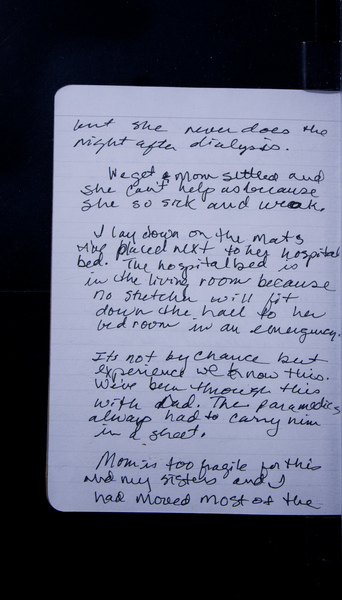 but she never does the
night after dialysis.
We get Mom settled and
she can't help us because
she so sick and weak.
I lay down on the mats
I've placed next to her hospital
bed. The hospital bed is
in the living room because
no stretcher will fit
down the hall to her
bedroom in an emergency.
It's not by chance but
experience we know this.
We've been through this
with Dad. The paramedics
always had to carry him
in a sheet.
Mom is too fragile for this
and my sisters and I
had moved most of the